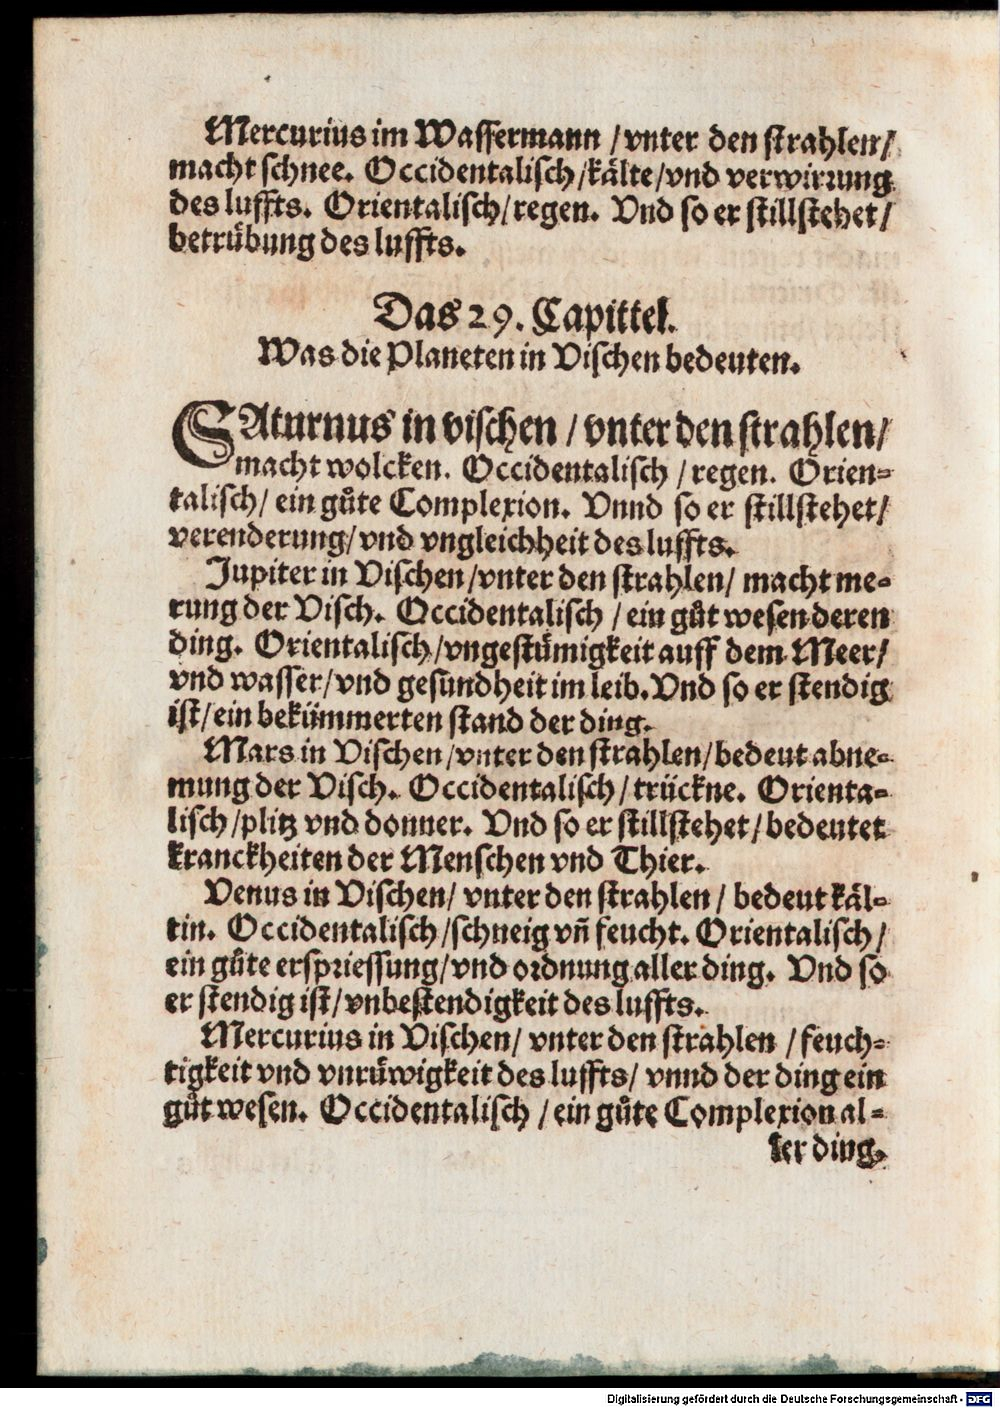 Mercurius im Wassermann / vnter den strahlen /
macht schnee. Occidentalisch / kälte / vnd verwirrung
des luffts. Orientalisch / regen. Vnd so er stillstehet /
betrübung des luffts.
Das 29. Capittel.
Was die Planeten in Vischen bedeuten.
SAturnus in vischen / vnter den strahlen /
macht wolcken. Occidentalisch / regen. Orien-
talisch / ein gůte Complexion. Vnnd so er stillstehet /
verenderung / vnd vngleichheit des luffts.
Jupiter in Vischen / vnter den strahlen / macht me-
rung der Visch. Occidentalisch / ein gůt wesen deren
ding. Orientalisch / vngestümigkeit auff dem Meer /
vnd wasser / vnd gesundheit im leib. Vnd so er stendig
ist / ein bekümmerten stand der ding.
Mars in Vischen / vnter den strahlen / bedeut abne-
mung der Visch. Occidentalisch / trückne. Orienta-
lisch / plitz vnd donner. Vnd so er stillstehet / bedeutet
kranckheiten der Menschen vnd Thier.
Venus in Vischen / vnter den strahlen / bedeut käl-
tin. Occidentalisch / schneig vñ feucht. Orientalisch /
ein gůte erspriessung / vnd ordnung aller ding. Vnd so
er stendig ist / vnbestendigkeit des luffts.
Mercurius in Vischen / vnter den strahlen / feuch-
tigkeit vnd vnrüwigkeit des luffts / vnnd der ding ein
gůt wesen. Occidentalisch / ein gůte Complexion al-
ler ding.
Digitalisierung gefördert durch die Deutsche Forschungsgemeinschaft - DFG